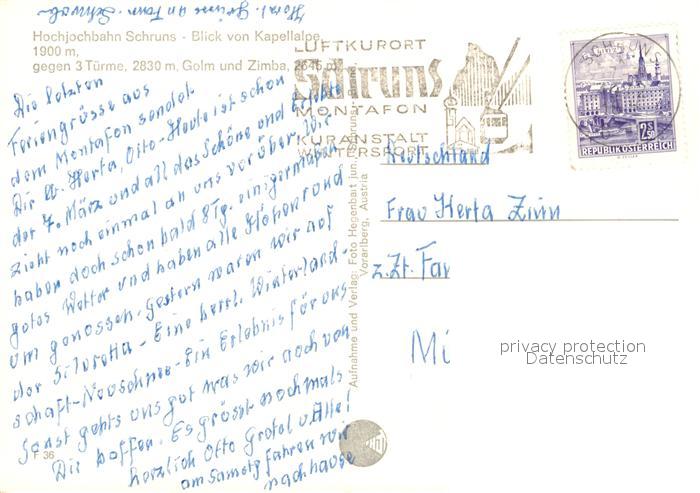 Horal. Grüsse an Fam. Schwab
Hochjochbahn Schruns - Blick von Kapellalpe,
1900 m,
gegen 3 Türme, 2830 m, Golm und Zimba, 2645 m
Die letzten
Feriengrüsse aus
dem Montafon sendet
Dir lb. Herta, Otto - Heute ist schon
der 7. März und all das Schöne und Erlebte
zieht noch einmal an uns vorüber. Wir
haben doch schon bald 8 Tg. einigermaßen
gutes Wetter und haben alle Höhen rund
um genossen. Gestern waren wir auf
der Silvretta - Eine herrl. Winterland-
schaft - Neuschnee - Ein Erlebnis für uns
Sonst gehts uns gut was wir auch von
Dir hoffen. Es grüsst nochmals
herzlich Otto Gretel u. Alle!
am Samstg fahren wir
nach hause
F 36
Aufnahme und Verlag: Foto Hegenbart jun., Schruns
Vorarlberg, Austria
LUFTKURORT
Schruns
MONTAFON
KURANSTALT
WINTERSPORT
SCHRUNS
Linz
2.50
REPUBLIK ÖSTERREICH
Deutschland
Frau Herta
z. Zt.
Mi
privacy protection
Datenschutz